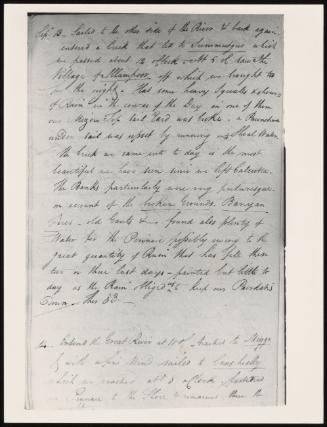 Sailed to the other side of the River & back again
entered a Creek that led to which
we passed about 12 oClock - at 5 oC saw the
Village of off which we brought to
for the night. Had some heavy Squalls & showers
of Rain in the course of the Day in one of them
our Top Sail Yard was broke. a
under sail was upset by running on Shoal Water
the Creek we came into to day is the most
beautiful we have seen since we left Calcutta.
The Banks particularly are very picturesque.
on account of the broken Grounds. Banyan
Trees - old Gauts &c - found also plenty of
Water for the Pinnace possibly owing to the
great quantity of Rain that has fell these
two or three last days - painted but little to
day as the Rain Obliged us to keep our
Down - this 3d
4. Entered the Great River at
with a fine Wind sailed to
which we reached at 8 oClock fastened
Pinnace to the Shore & remained there the